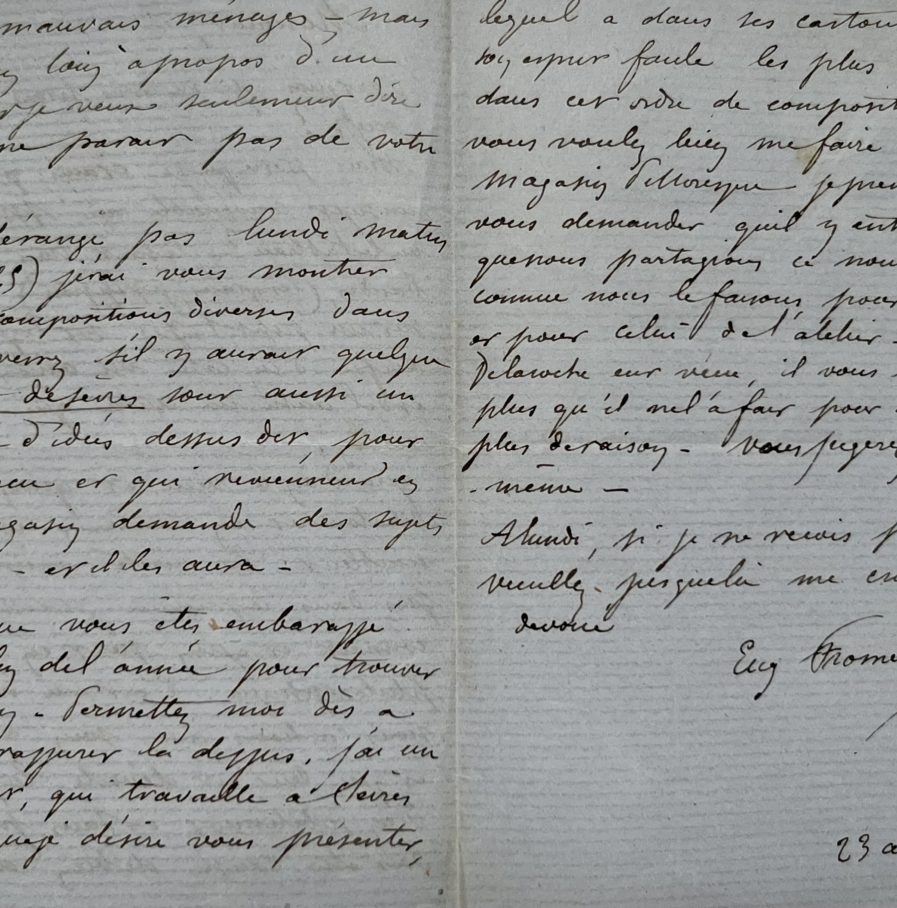 mauvais ménages – mais
loin apropos d'un
je veux seulement dire
ne parait pas de votre
dérange pas lundi matin
25) j'irai vous montrer
compositions diverses dans
verrez s'il y aurait quelque
desirés sour aussi un
d'idées dessus dit, pour
et qui reviennent en
magasin demande des sujets
– et il les aura –
que vous êtes embarassé
del'année pour trouver
– Permettez moi dès a
rassurer la dessus, j'ai un
, qui travaille a Sèvres
queje désire vous présenter,
lequel a dans ses carton
les plus
dans cet ordre de composit
vous voulez bien me faire
Magasin Pittoresque jepren
vous demander quil y ent
quenous partagions ce nou
comme nous lefaisons, pour
et pour celui de l'atelier –
Delaroche eut vécu, il vous
plus qu'il nel'a fait pour
plus deraison – vous jugerez
-même –
A lundi, si je ne recois p
veuillez, jusquelà me cr
dévoué
Eug Frome
23 a